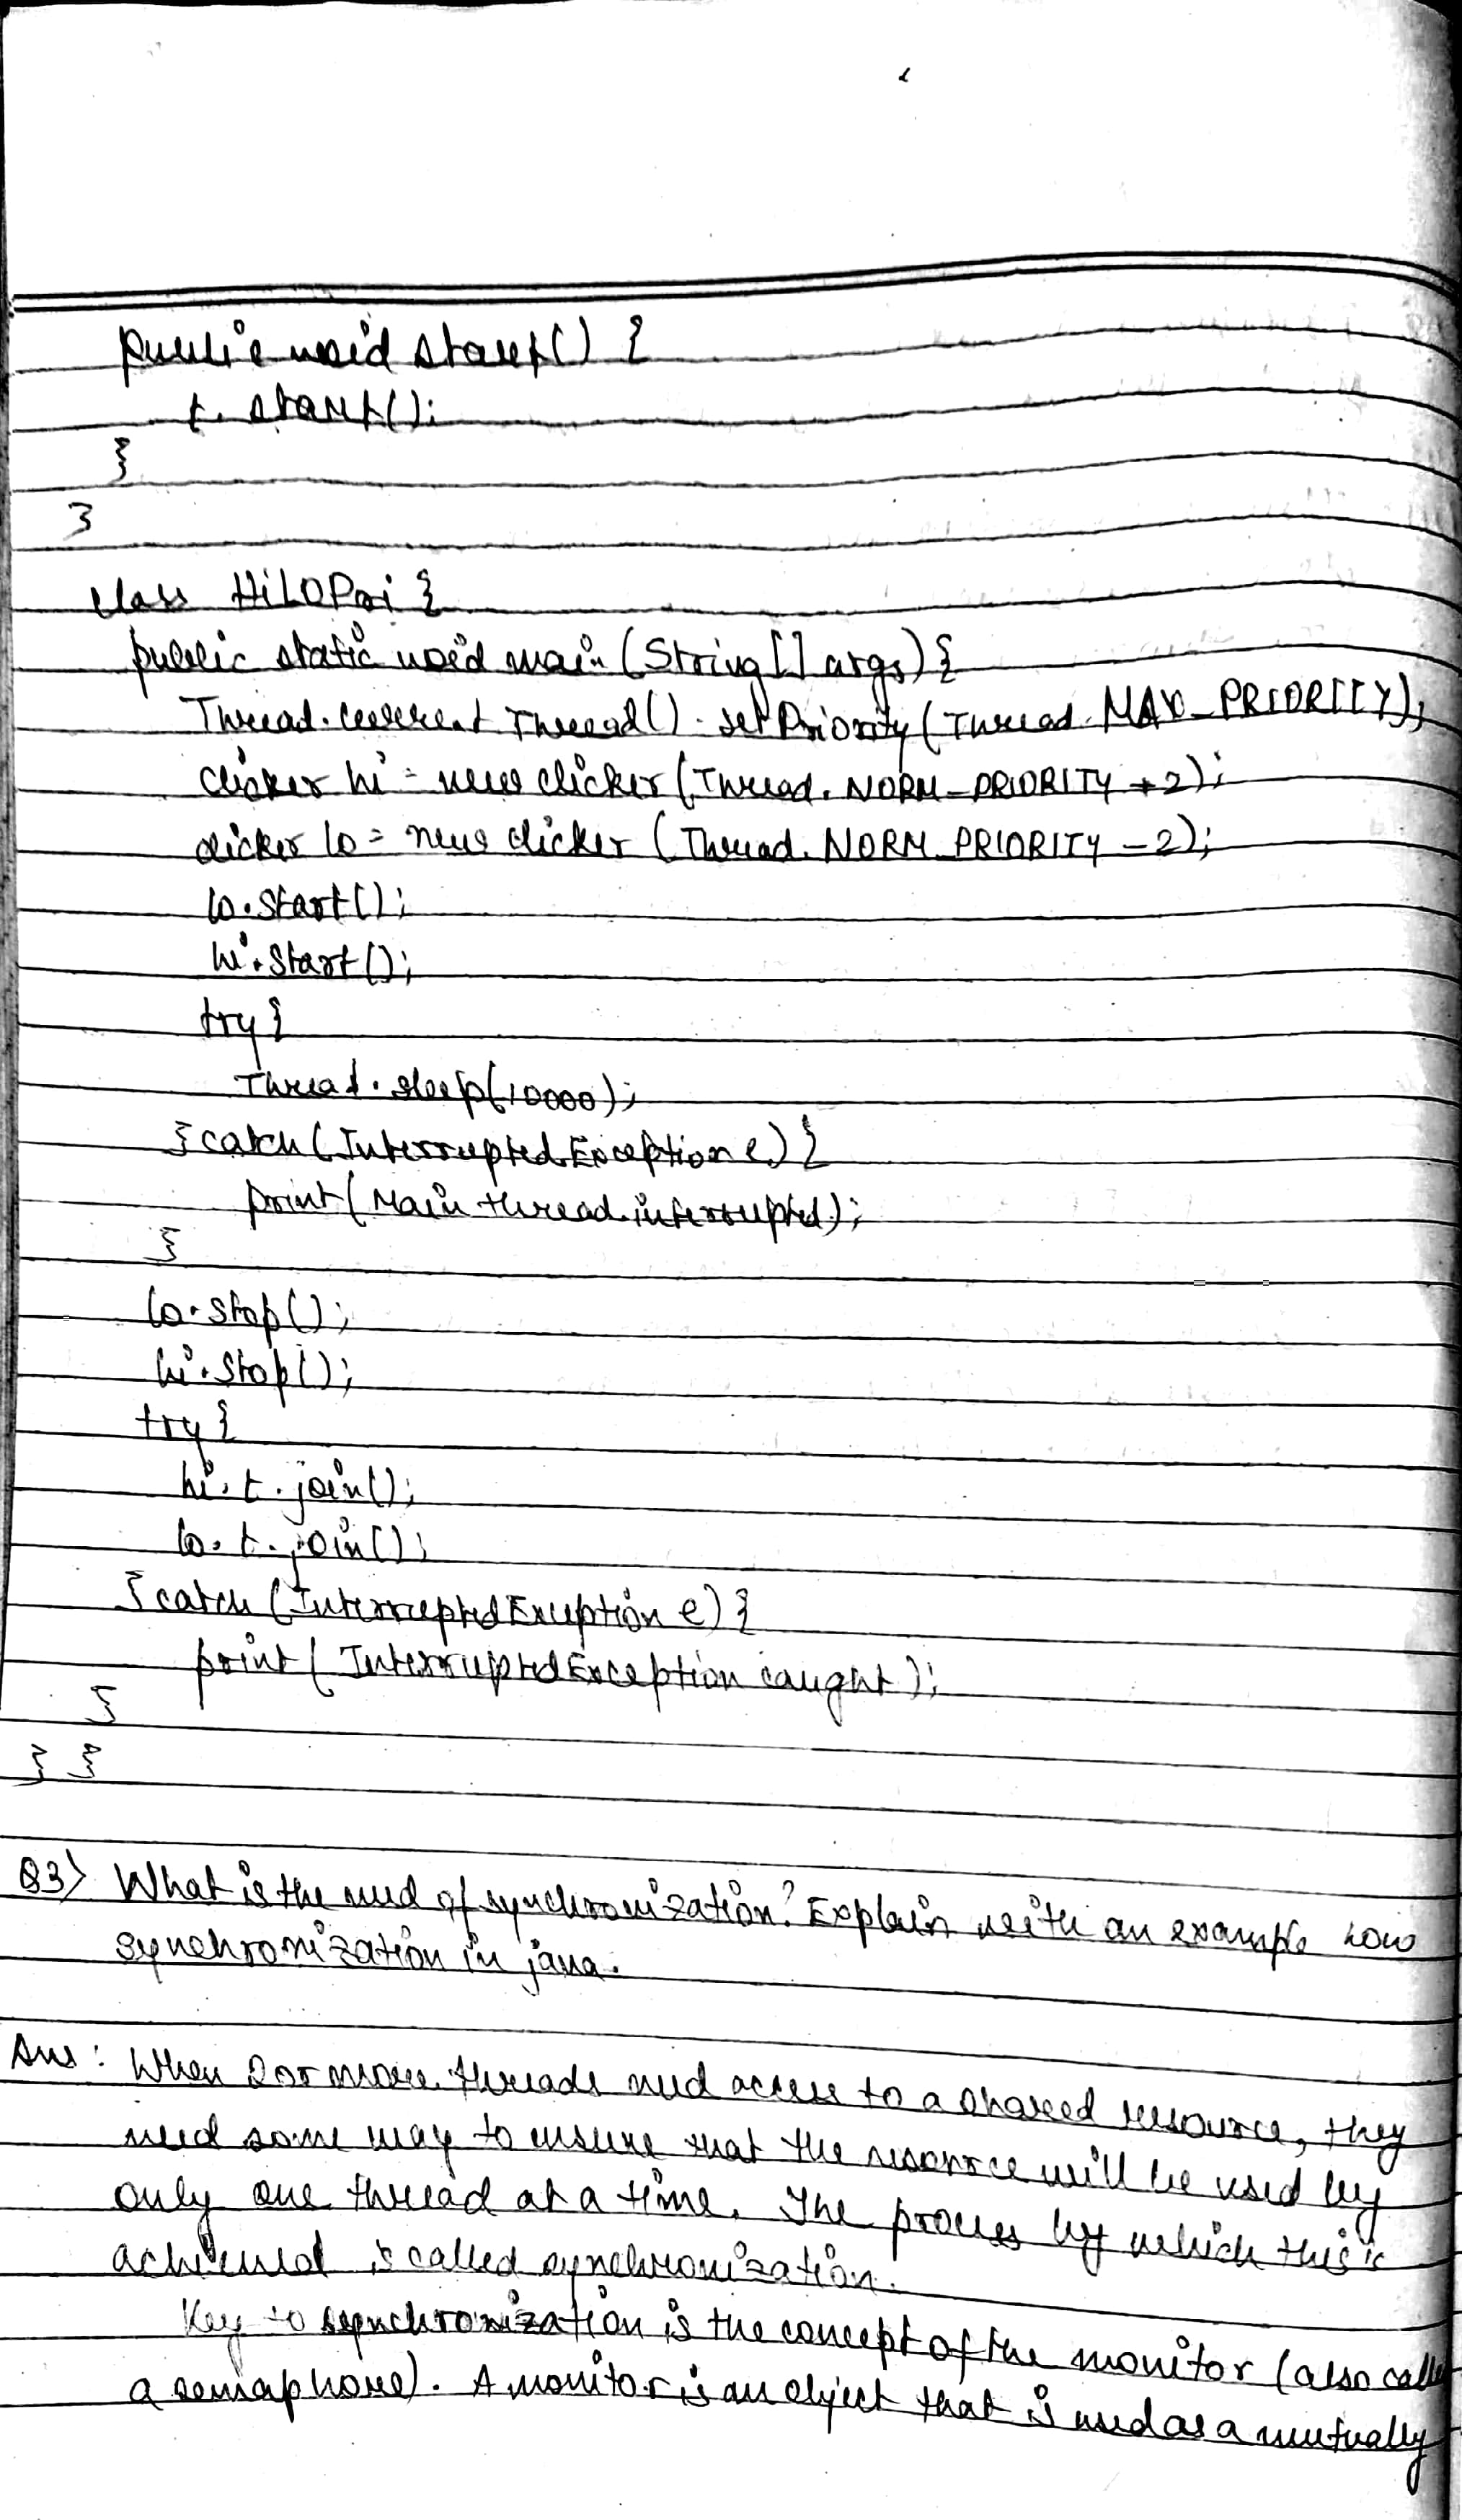 public void start() {
t. start();
}
}
class HiLOPri {
public static void main (String [] args) {
Thread.current Thread() . setPriority (Thread. MAX_PRIORITY);
clicker hi = new clicker (Thread. NORM_PRIORITY + 2);
clicker lo = new clicker (Thread. NORM_PRIORITY - 2);
lo.start();
hi.start();
try {
Thread.sleep(10000);
} catch (InterruptedException e) {
print( Main thread interrupted);
}
lo.stop();
hi.stop();
try {
hi.t.join();
lo.t.join();
} catch (InterruptedException e) {
print( InterruptedException caught );
}
} }
Q3) What is the need of synchronization? Explain with an example how
synchronization in java.
Ans: When 2 or more threads need access to a shared resource, they
need some way to ensure that the resource will be used by
only one thread at a time. The process by which this is
achieved is called synchronization.
Key to synchronization is the concept of the monitor (also calle
a semaphore). A monitor is an object that is used as a mutually